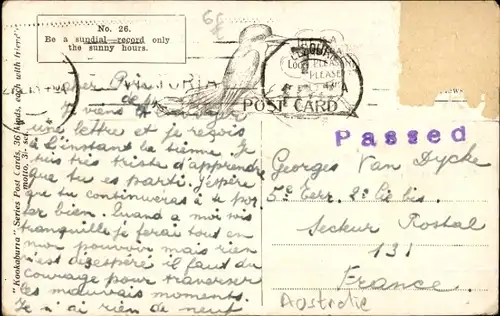 No. 26.
Be a sundial—record only
the sunny hours.
"Kookaburra" Series Post Cards, 36 kinds, each with friend
motto, 3.
VICTORIA
PLEASE
POST CARD
Passed
Cher
Je viens
une lettre et je reçois
à l'instant la tienne. Je
suis très triste d'apprendre
que tu es parti. J'espère
que tu continueras à te por
ter bien. Quand a moi sois
tranquille je ferai tout en
mon pouvoir mais rien
n'est désespéré il faut du
courage pour traverser
les mauvais moments.
Je n'ai rien de neuf
Georges Van Dycke
5e Terr. 2e Cie bis.
Secteur Postal
131
France.
Australie